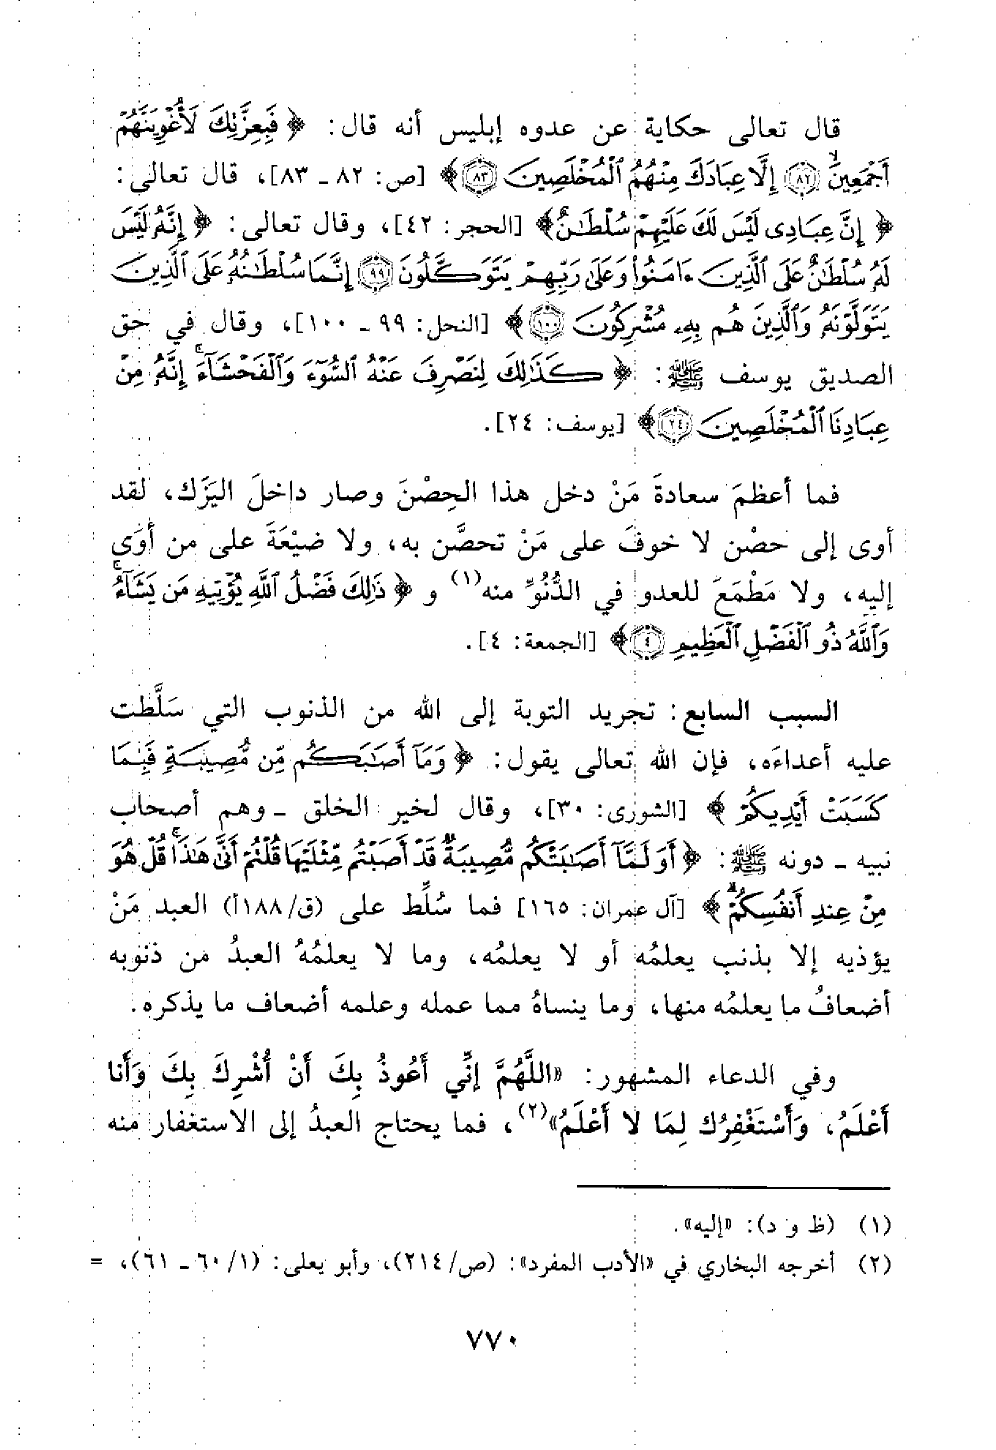 قال تعالى حكاية عن عدوه إبليس أنه قال: ﴿ فَبِعِزَّتِكَ لَأُغْوِيَنَّهُمْ
أَجْمَعِينَ ﴿٨٢﴾ إِلَّا عِبَادَكَ مِنْهُمُ ٱلْمُخْلَصِينَ ﴿٨٣﴾ ﴾ [ص: ٨٢ ـ ٨٣]، قال تعالى:
﴿ إِنَّ عِبَادِى لَيْسَ لَكَ عَلَيْهِمْ سُلْطَـٰنٌ ﴾ [الحجر: ٤٢]، وقال تعالى: ﴿ إِنَّهُۥ لَيْسَ
لَهُۥ سُلْطَـٰنٌ عَلَى ٱلَّذِينَ ءَامَنُوا۟ وَعَلَىٰ رَبِّهِمْ يَتَوَكَّلُونَ ﴿٩٩﴾ إِنَّمَا سُلْطَـٰنُهُۥ عَلَى ٱلَّذِينَ
يَتَوَلَّوْنَهُۥ وَٱلَّذِينَ هُم بِهِۦ مُشْرِكُونَ ﴿١٠٠﴾ ﴾ [النحل: ٩٩ ـ ١٠٠]، وقال في حق
الصديق يوسف ﷺ: ﴿ كَذَٰلِكَ لِنَصْرِفَ عَنْهُ ٱلسُّوٓءَ وَٱلْفَحْشَآءَ ۚ إِنَّهُۥ مِنْ
عِبَادِنَا ٱلْمُخْلَصِينَ ﴿٢٤﴾ ﴾ [يوسف: ٢٤].
فما أعظمَ سعادةَ مَنْ دخل هذا الحِصْنَ وصار داخلَ اليَزَك، لقد
أوى إلى حصْن لا خوفَ على مَنْ تحصَّن به، ولا ضيْعَةَ على من أوَى
إليه، ولا مَطْمَعَ للعدو في الدُّنُوِّ منه(١) و ﴿ ذَٰلِكَ فَضْلُ ٱللَّهِ يُؤْتِيهِ مَن يَشَآءُ ۚ
وَٱللَّهُ ذُو ٱلْفَضْلِ ٱلْعَظِيمِ ﴿٤﴾ ﴾ [الجمعة: ٤].
السبب السابع: تجريد التوبة إلى الله من الذنوب التي سَلَّطت
عليه أعداءَه، فإن الله تعالى يقول: ﴿ وَمَآ أَصَـٰبَكُم مِّن مُّصِيبَةٍ فَبِمَا
كَسَبَتْ أَيْدِيكُمْ ﴾ [الشورى: ٣٠]، وقال لخير الخلق ـ وهم أصحاب
نبيه ـ دونه ﷺ: ﴿ أَوَلَمَّآ أَصَـٰبَتْكُم مُّصِيبَةٌ قَدْ أَصَبْتُم مِّثْلَيْهَا قُلْتُمْ أَنَّىٰ هَـٰذَا ۖ قُلْ هُوَ
مِنْ عِندِ أَنفُسِكُمْ ۗ ﴾ [آل عمران: ١٦٥] فما سُلِّط على (ق/١٨٨أ) العبد مَنْ
يؤذيه إلا بذنب يعلمُه أو لا يعلمُه، وما لا يعلمُهُ العبدُ من ذنوبه
أضعافُ ما يعلمُه منها، وما ينساهُ مما عمله وعلمه أضعاف ما يذكره.
وفي الدعاء المشهور: «اللَّهُمَّ إنِّي أَعُوذُ بِكَ أَنْ أُشْرِكَ بِكَ وَأَنا
أَعْلَمُ، وَأَسْتَغْفِرُك لِمَا لا أَعْلَمُ»(٢)، فما يحتاج العبدُ إلى الاستغفار منه
(١) (ظ و د): «إليه».
(٢) أخرجه البخاري في «الأدب المفرد»: (ص/٢١٤)، وأبو يعلى: (١/ ٦٠ ـ ٦١)، =
٧٧٠